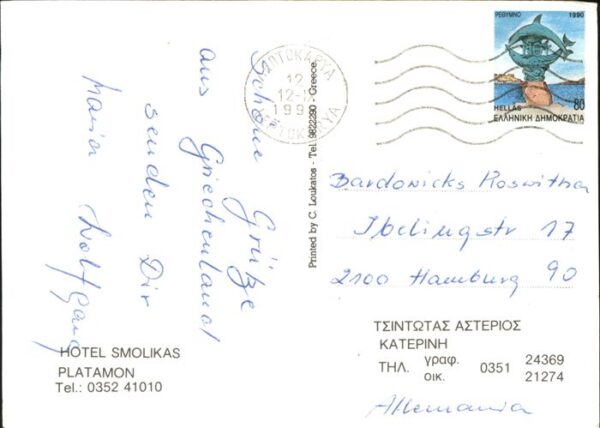 Schöne Grüße
aus Griechenland
senden Dir
Wolfgang
ΡΕΘΥΜΝΟ 1990
HELLAS 80
ΕΛΛΗΝΙΚΗ ΔΗΜΟΚΡΑΤΙΑ
12
Printed by C. Loukatos - Tel. 982290 - Greece.
Bardowicks Roswitha
Ibelingstr 17
2100 Hamburg 90
ΤΣΙΝΤΩΤΑΣ ΑΣΤΕΡΙΟΣ
ΚΑΤΕΡΙΝΗ
ΤΗΛ. γραφ. 0351 24369
οικ. 21274
Allemania
HOTEL SMOLIKAS
PLATAMON
Tel.: 0352 41010